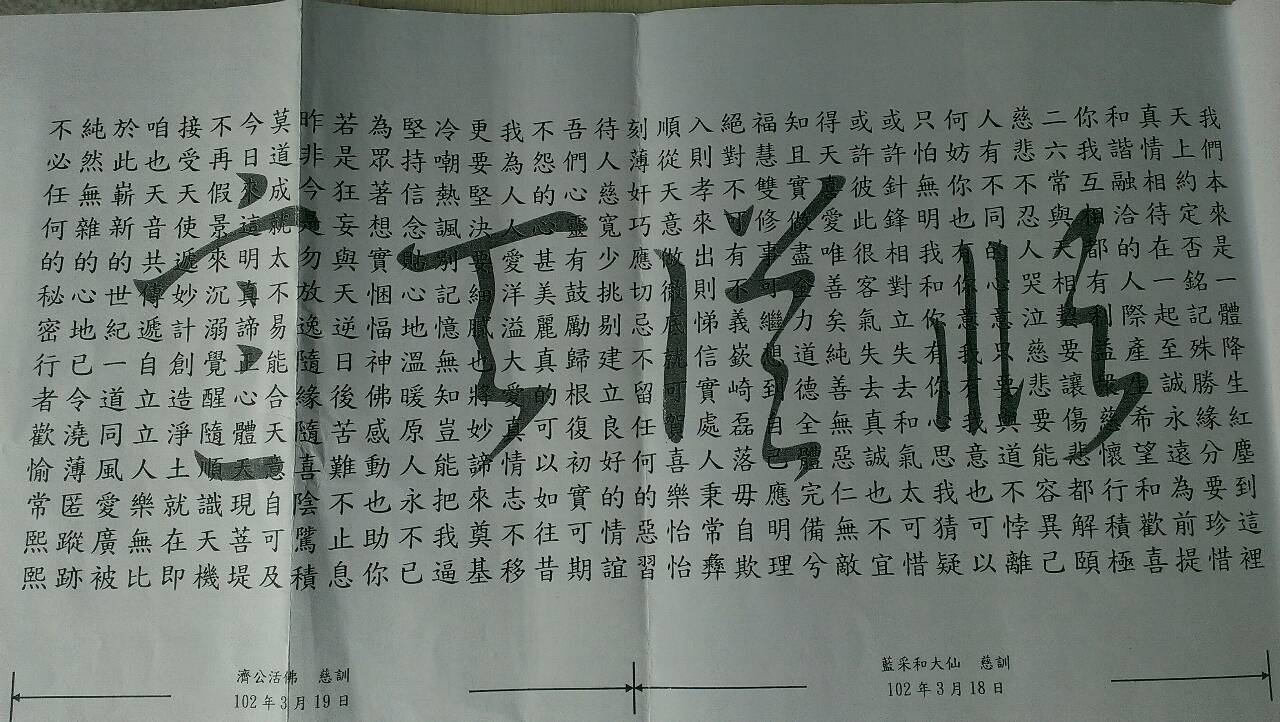 我們本來是一體降生紅塵到這裡
天上約定否銘記殊勝緣分要珍惜
真情相待在一起至誠永遠為前提
和諧融洽的人際產生希望和歡喜
你我互相都有利益眾慈懷行積極
二六常與天相契要讓傷悲都解頤
慈悲不忍人哭泣慈悲要能容異己
人有不同的心意只要與道不悖離
何妨你也有你意我有我意也可以
只怕無明我和你有你心思我猜疑
或許針鋒相對立失去和氣太可惜
或許彼此很客氣失去真誠也不宜
得天愛唯善矣純善無惡仁無敵
知且實做盡全力道德全體完備兮
福慧雙修事可繼想到自己應明理
絕對不可有不義嶔崎磊落毋自欺
入則孝來出則悌信實處人秉常彝
順從天意做徹底就可喜樂怡怡
刻薄奸巧應切忌不留任何的惡習
待人慈寬少挑剔建立良好的情誼
吾們心靈有鼓勵歸根復初實可期
不怨的心甚美麗真的可以如往昔
我為人人愛洋溢大愛真情志不移
更要堅決要細膩也將妙諦來奠基
冷嘲熱諷別記憶無知豈能把我逼
堅持信念地心地溫暖原人永不已
為眾著想實悃愊神佛感動也助你
若是狂妄與天逆日後苦難不止息
昨非今是勿放逸隨緣隨喜陰騭積
莫道成就太不易能合天意自可及
今日來這明真諦正心體天現菩堤
不再假景來沉溺覺醒隨順識天機
接受天使遞妙計創造淨土就在即
咱也天音共傳遞自立立人樂無比
於此嶄新的世紀一道同風愛廣被
純然無雜的心地已令澆薄匿蹤跡
不必任何的秘密行者歡愉常熙熙
藍采和大仙　慈訓
102年3月18日
濟公活佛　慈訓
102年3月19日